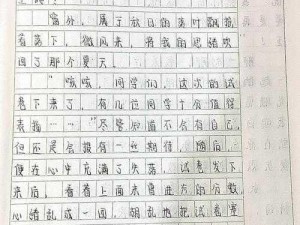 窗外，属于秋日的落叶飘飘
着落下，微风来，将我的思绪吹
回了那个夏天
"咳咳，同学们，这次的试
卷下来了，有几位同学十分值得
表扬……"尽管知道不会有自己，
但还是会抱有一丝期待，随后，
便在心中充满了失落，试卷发下
来后，看着上面未曾出方的分数，
心绪乱成一团，胡乱地把试卷塞